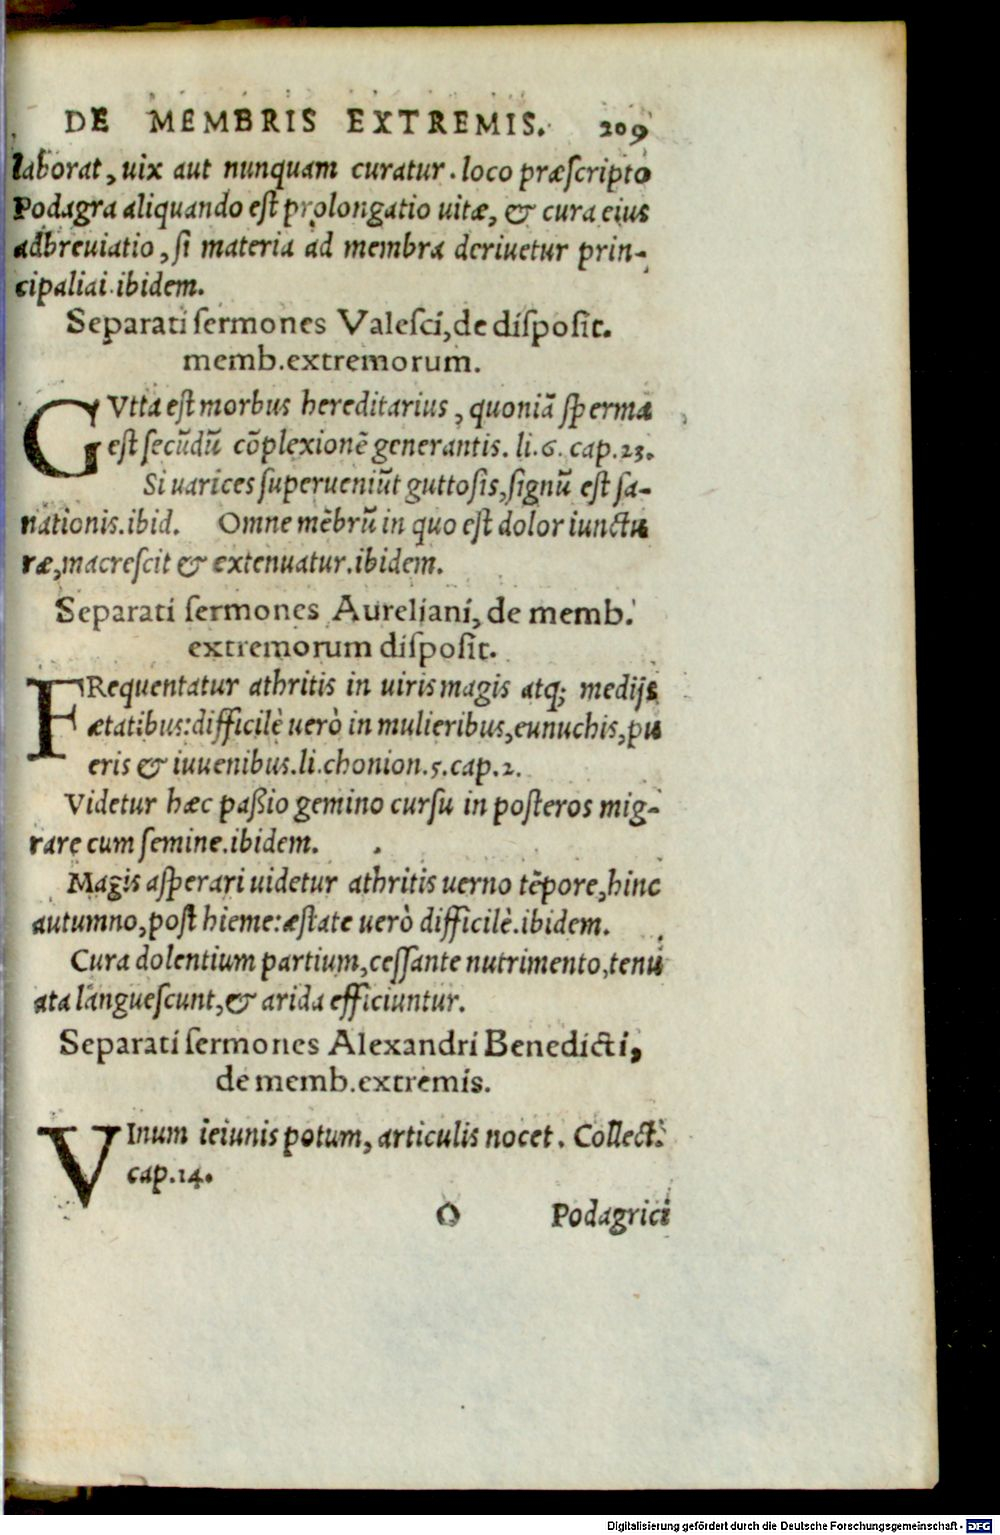 DE MEMBRIS EXTREMIS. 209
laborat, uix aut nunquam curatur. loco præscripto
Podagra aliquando est prolongatio uitæ, & cura eius
adbreuiatio, si materia ad membra deriuetur prin-
cipaliai.ibidem.
Separati sermones Valesci, de disposit.
memb.extremorum.
GVtta est morbus hereditarius, quoniã sperma
est secũdũ cõplexionẽ generantis. li.6. cap.23.
Si uarices superueniũt guttosis, signũ est sa-
nationis.ibid. Omne mẽbrũ in quo est dolor iunctu
ræ, macrescit & extenuatur.ibidem.
Separati sermones Aureliani, de memb.
extremorum disposit.
FRequentatur athritis in uiris magis atq; medijs
ætatibus: difficilè uerò in mulieribus, eunuchis, pu
eris & iuuenibus.li.chonion.5.cap.2.
Videtur hæc paßio gemino cursu in posteros mig-
rare cum semine.ibidem.
Magis asperari uidetur athritis uerno tẽpore, hinc
autumno, post hieme: æstate uerò difficilè.ibidem.
Cura dolentium partium, cessante nutrimento, tenu
ata languescunt, & arida efficiuntur.
Separati sermones Alexandri Benedicti,
de memb.extremis.
VInum ieiunis potum, articulis nocet. Collect.
cap.14.
O Podagrici
Digitalisierung gefördert durch die Deutsche Forschungsgemeinschaft - DFG